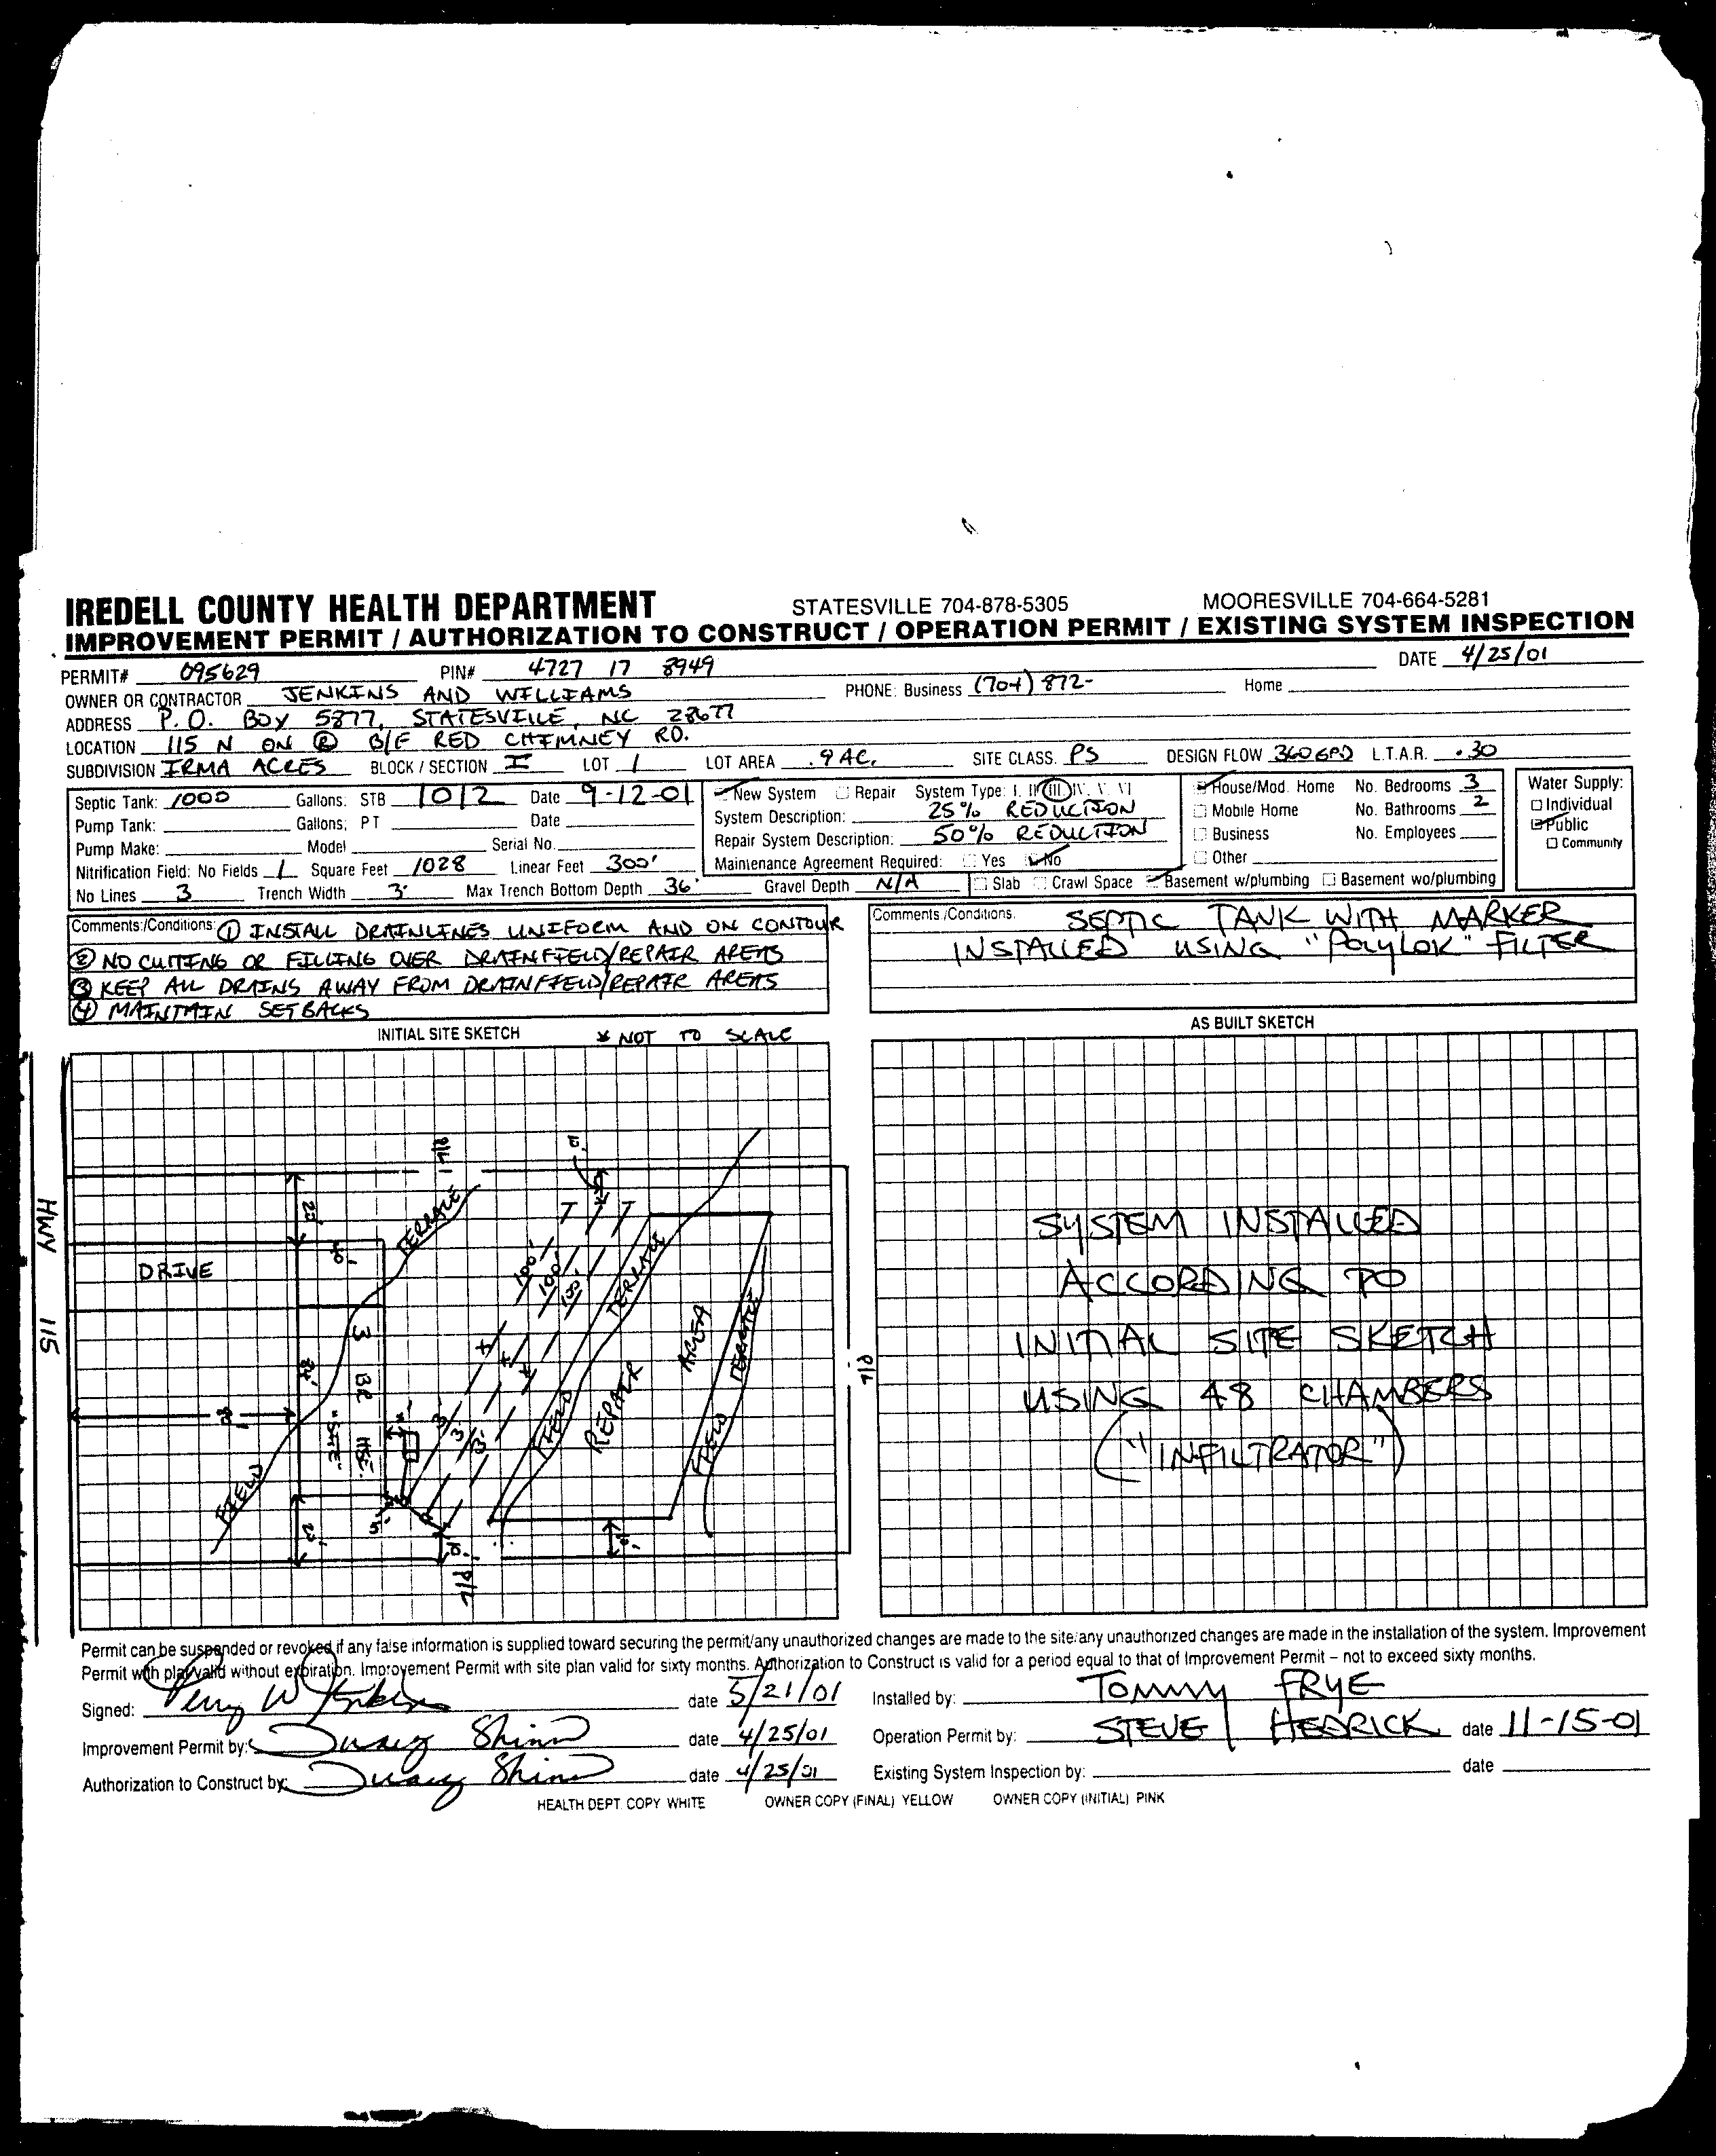 IREDELL COUNTY HEALTH DEPARTMENT STATESVILLE 704-878-5305 MOORESVILLE 704-664-5281
IMPROVEMENT PERMIT / AUTHORIZATION TO CONSTRUCT / OPERATION PERMIT / EXISTING SYSTEM INSPECTION
PERMIT# 095629 PIN# 4727 17 8949 DATE 4/25/01
OWNER OR CONTRACTOR JENKINS AND WILLIAMS PHONE: Business (704) 872- Home
ADDRESS P.O. BOX 5877, STATESVILLE, NC 28677
LOCATION 115 N ON R B/F RED CHIMNEY RD.
SUBDIVISION IRMA ACRES BLOCK / SECTION I LOT 1 LOT AREA .9 AC. SITE CLASS. PS DESIGN FLOW 360 GPD L.T.A.R. .30
Septic Tank: 1000 Gallons: STB 1012 Date 9-12-01 New System Repair System Type: I. II III IV. V. VI House/Mod. Home No. Bedrooms 3 Water Supply:
Pump Tank: Gallons; PT Date System Description: 25% REDUCTION Mobile Home No. Bathrooms 2 Individual
Pump Make: Model Serial No. Repair System Description: 50% REDUCTION Business No. Employees Public
Nitrification Field: No Fields 1 Square Feet 1028 Linear Feet 300' Maintenance Agreement Required: Yes No Other Community
No Lines 3 Trench Width 3' Max Trench Bottom Depth 36" Gravel Depth N/A Slab Crawl Space Basement w/plumbing Basement wo/plumbing
Comments:/Conditions: ① INSTALL DRAINLINES UNIFORM AND ON CONTOUR
② NO CUTTING OR FILLING OVER DRAINFIELD/REPAIR AREAS
③ KEEP ALL DRAINS AWAY FROM DRAINFIELD/REPAIR AREAS
④ MAINTAIN SETBACKS
Comments./Conditions. SEPTIC TANK WITH MARKER
INSTALLED USING "POLYLOK" FILTER
INITIAL SITE SKETCH * NOT TO SCALE
HWY 115
P/L
10'
TERRACE
20'
40'
DRIVE
100'
100'
100'
TERRACE
3 BR HSE.
"SITE"
AREA
REPAIR
TERRACE
P/L
3'
3'
3'
FIELD
FIELD
FIELD
5'
10'
10'
P/L
AS BUILT SKETCH
SYSTEM INSTALLED
ACCORDING TO
INITIAL SITE SKETCH
USING 48 CHAMBERS
("INFILTRATOR")
Permit can be suspended or revoked if any false information is supplied toward securing the permit/any unauthorized changes are made to the site/any unauthorized changes are made in the installation of the system. Improvement
Permit with plat valid without expiration. Improvement Permit with site plan valid for sixty months. Authorization to Construct is valid for a period equal to that of Improvement Permit – not to exceed sixty months.
Signed: Perry W Jenkins date 5/21/01 Installed by: TOMMY FRYE
Improvement Permit by: Shinn date 4/25/01 Operation Permit by: STEVE HEDRICK date 11-15-01
Authorization to Construct by: Shinn date 4/25/01 Existing System Inspection by: date
HEALTH DEPT. COPY WHITE OWNER COPY (FINAL) YELLOW OWNER COPY (INITIAL) PINK